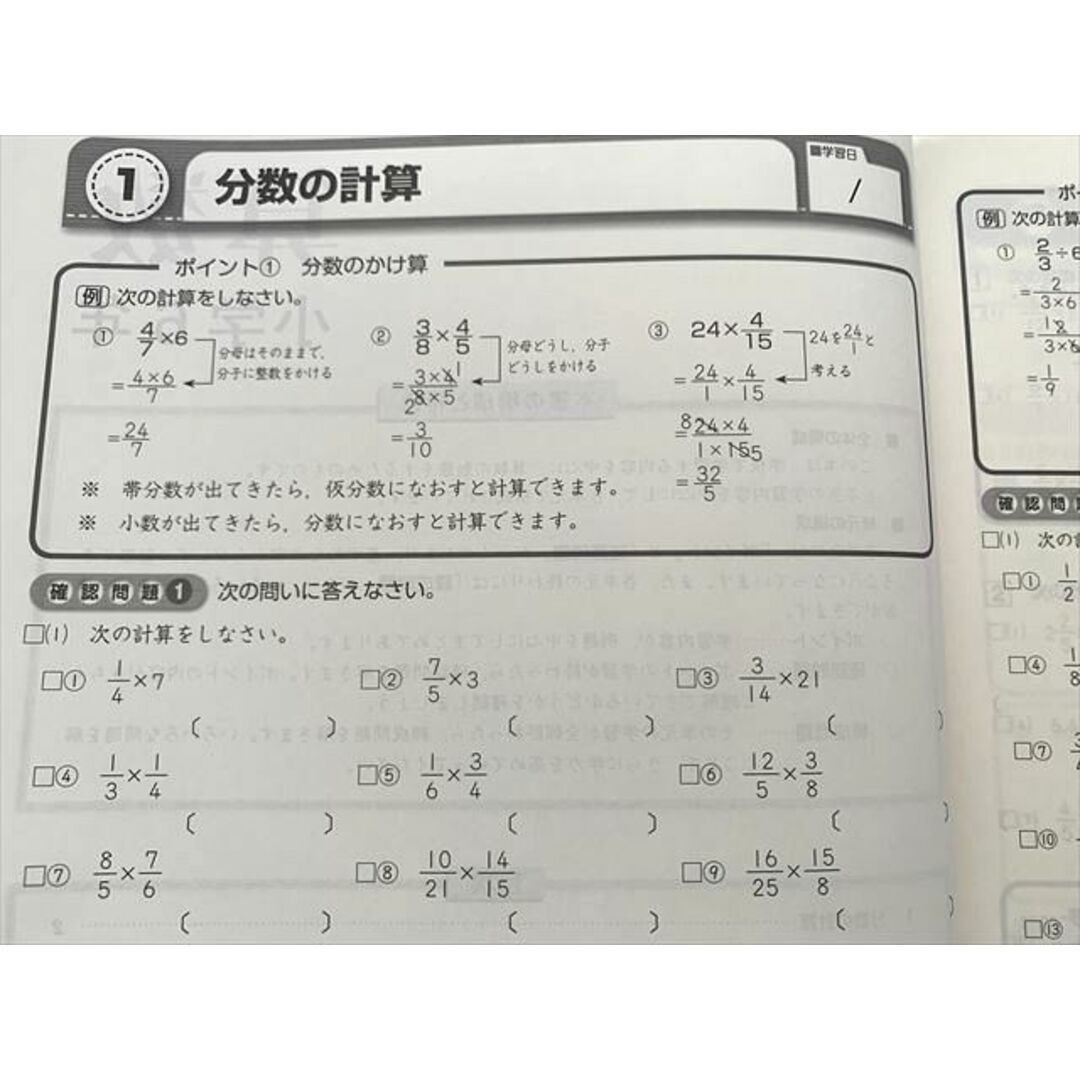 1 分数の計算
学習日
/
ポイント① 分数のかけ算
例 次の計算をしなさい。
① 4/7×6
分母はそのままで、
分子に整数をかける
=4×6/7
=24/7
② 3/8×4/5
分母どうし，分子
どうしをかける
=3×4/8×5
1
2
=3/10
③ 24×4/15
24を24/1と
考える
=24/1×4/15
=24×4/1×15
8
5
=32/5
※ 帯分数が出てきたら，仮分数になおすと計算できます。
※ 小数が出てきたら，分数になおすと計算できます。
確認問題1 次の問いに答えなさい。
□(1) 次の計算をしなさい。
□① 1/4×7 □② 7/5×3 □③ 3/14×21
( ) ( ) ( )
□④ 1/3×1/4 □⑤ 1/6×3/4 □⑥ 12/5×3/8
( ) ( ) ( )
□⑦ 8/5×7/6 □⑧ 10/21×14/15 □⑨ 16/25×15/8
( ) ( ) ( )
例 次の計算
① 2/3÷6
=2/3×6
=1/9
確認問
□(1) 次の
□① 1/2
□④ 1/8
□⑦
□⑩
□⑬